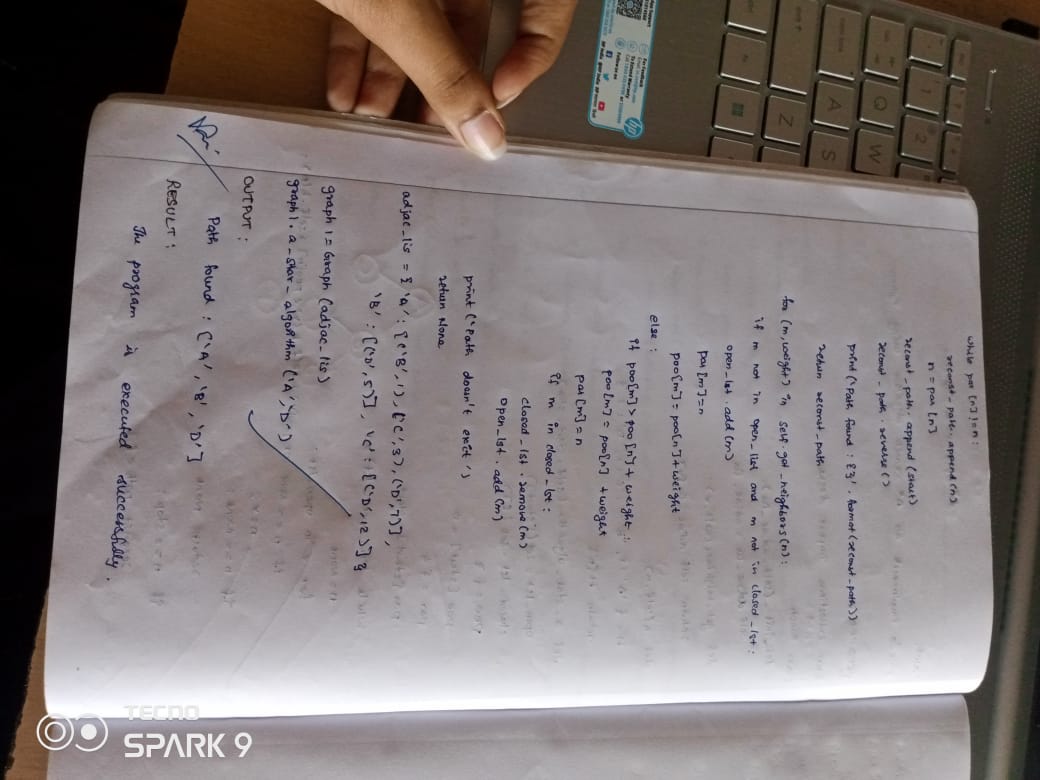 while par [n] != n:
reconst_path. append (n)
n = par [n]
reconst_path. append (start)
reconst_path. reverse ()
print ('Path found : {}'. format (reconst_path))
return reconst_path
for (m, weight) in self. get_neighbors (n):
if m not in open_list and m not in closed_lst:
open_lst. add (m)
par [m] = n
poo [m] = poo [n] + weight
else :
if poo [m] > poo [n] + weight :
poo [m] = poo [n] + weight
par [m] = n
if m in closed_lst :
closed_lst. remove (m)
open_lst. add (m)
print ('Path doesn't exit')
return None
adjac_lis = { 'A' : [('B', 1), ('C', 3), ('D', 7)],
'B' : [('D', 5)], 'C' : [('D', 12)] }
graph 1 = Graph (adjac_lis)
graph 1. a_star_algorithm ('A', 'D')
OUTPUT :
Path found : ['A', 'B', 'D']
RESULT :
The program is executed successfully.
1 2
Q W
A S
Z
fn
App Support
For Feedback
To Extend Warranty
Follow us on
hp
TECNO
SPARK 9